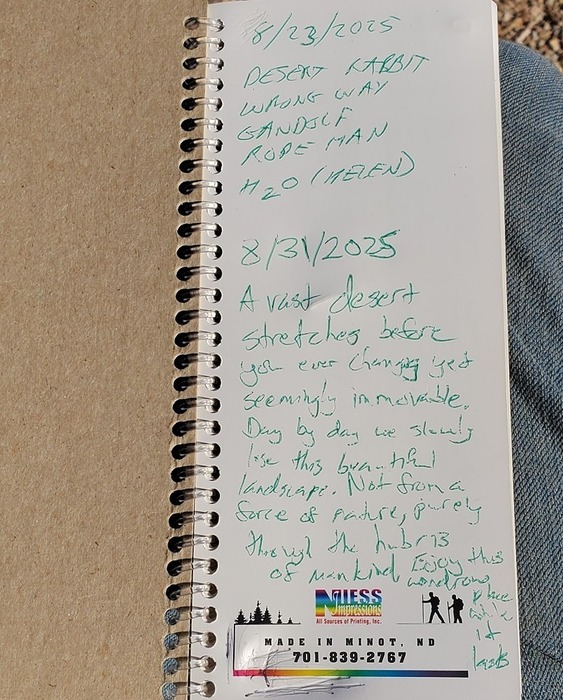 8/23/2025
DESERT RABBIT
WRONG WAY
GANDELF
ROPE MAN
H2O (HELEN)
8/31/2025
A vast desert
stretches before
you ever changing yet
seemingly immovable.
Day by day we slowly
lose this beautiful
landscape. Not from a
force of nature, purely
through the hubris
of mankind Enjoy this
wondrous place
while
it
lasts
NIESS
Impressions
All Sources of Printing, Inc.
MADE IN MINOT, ND
701-839-2767